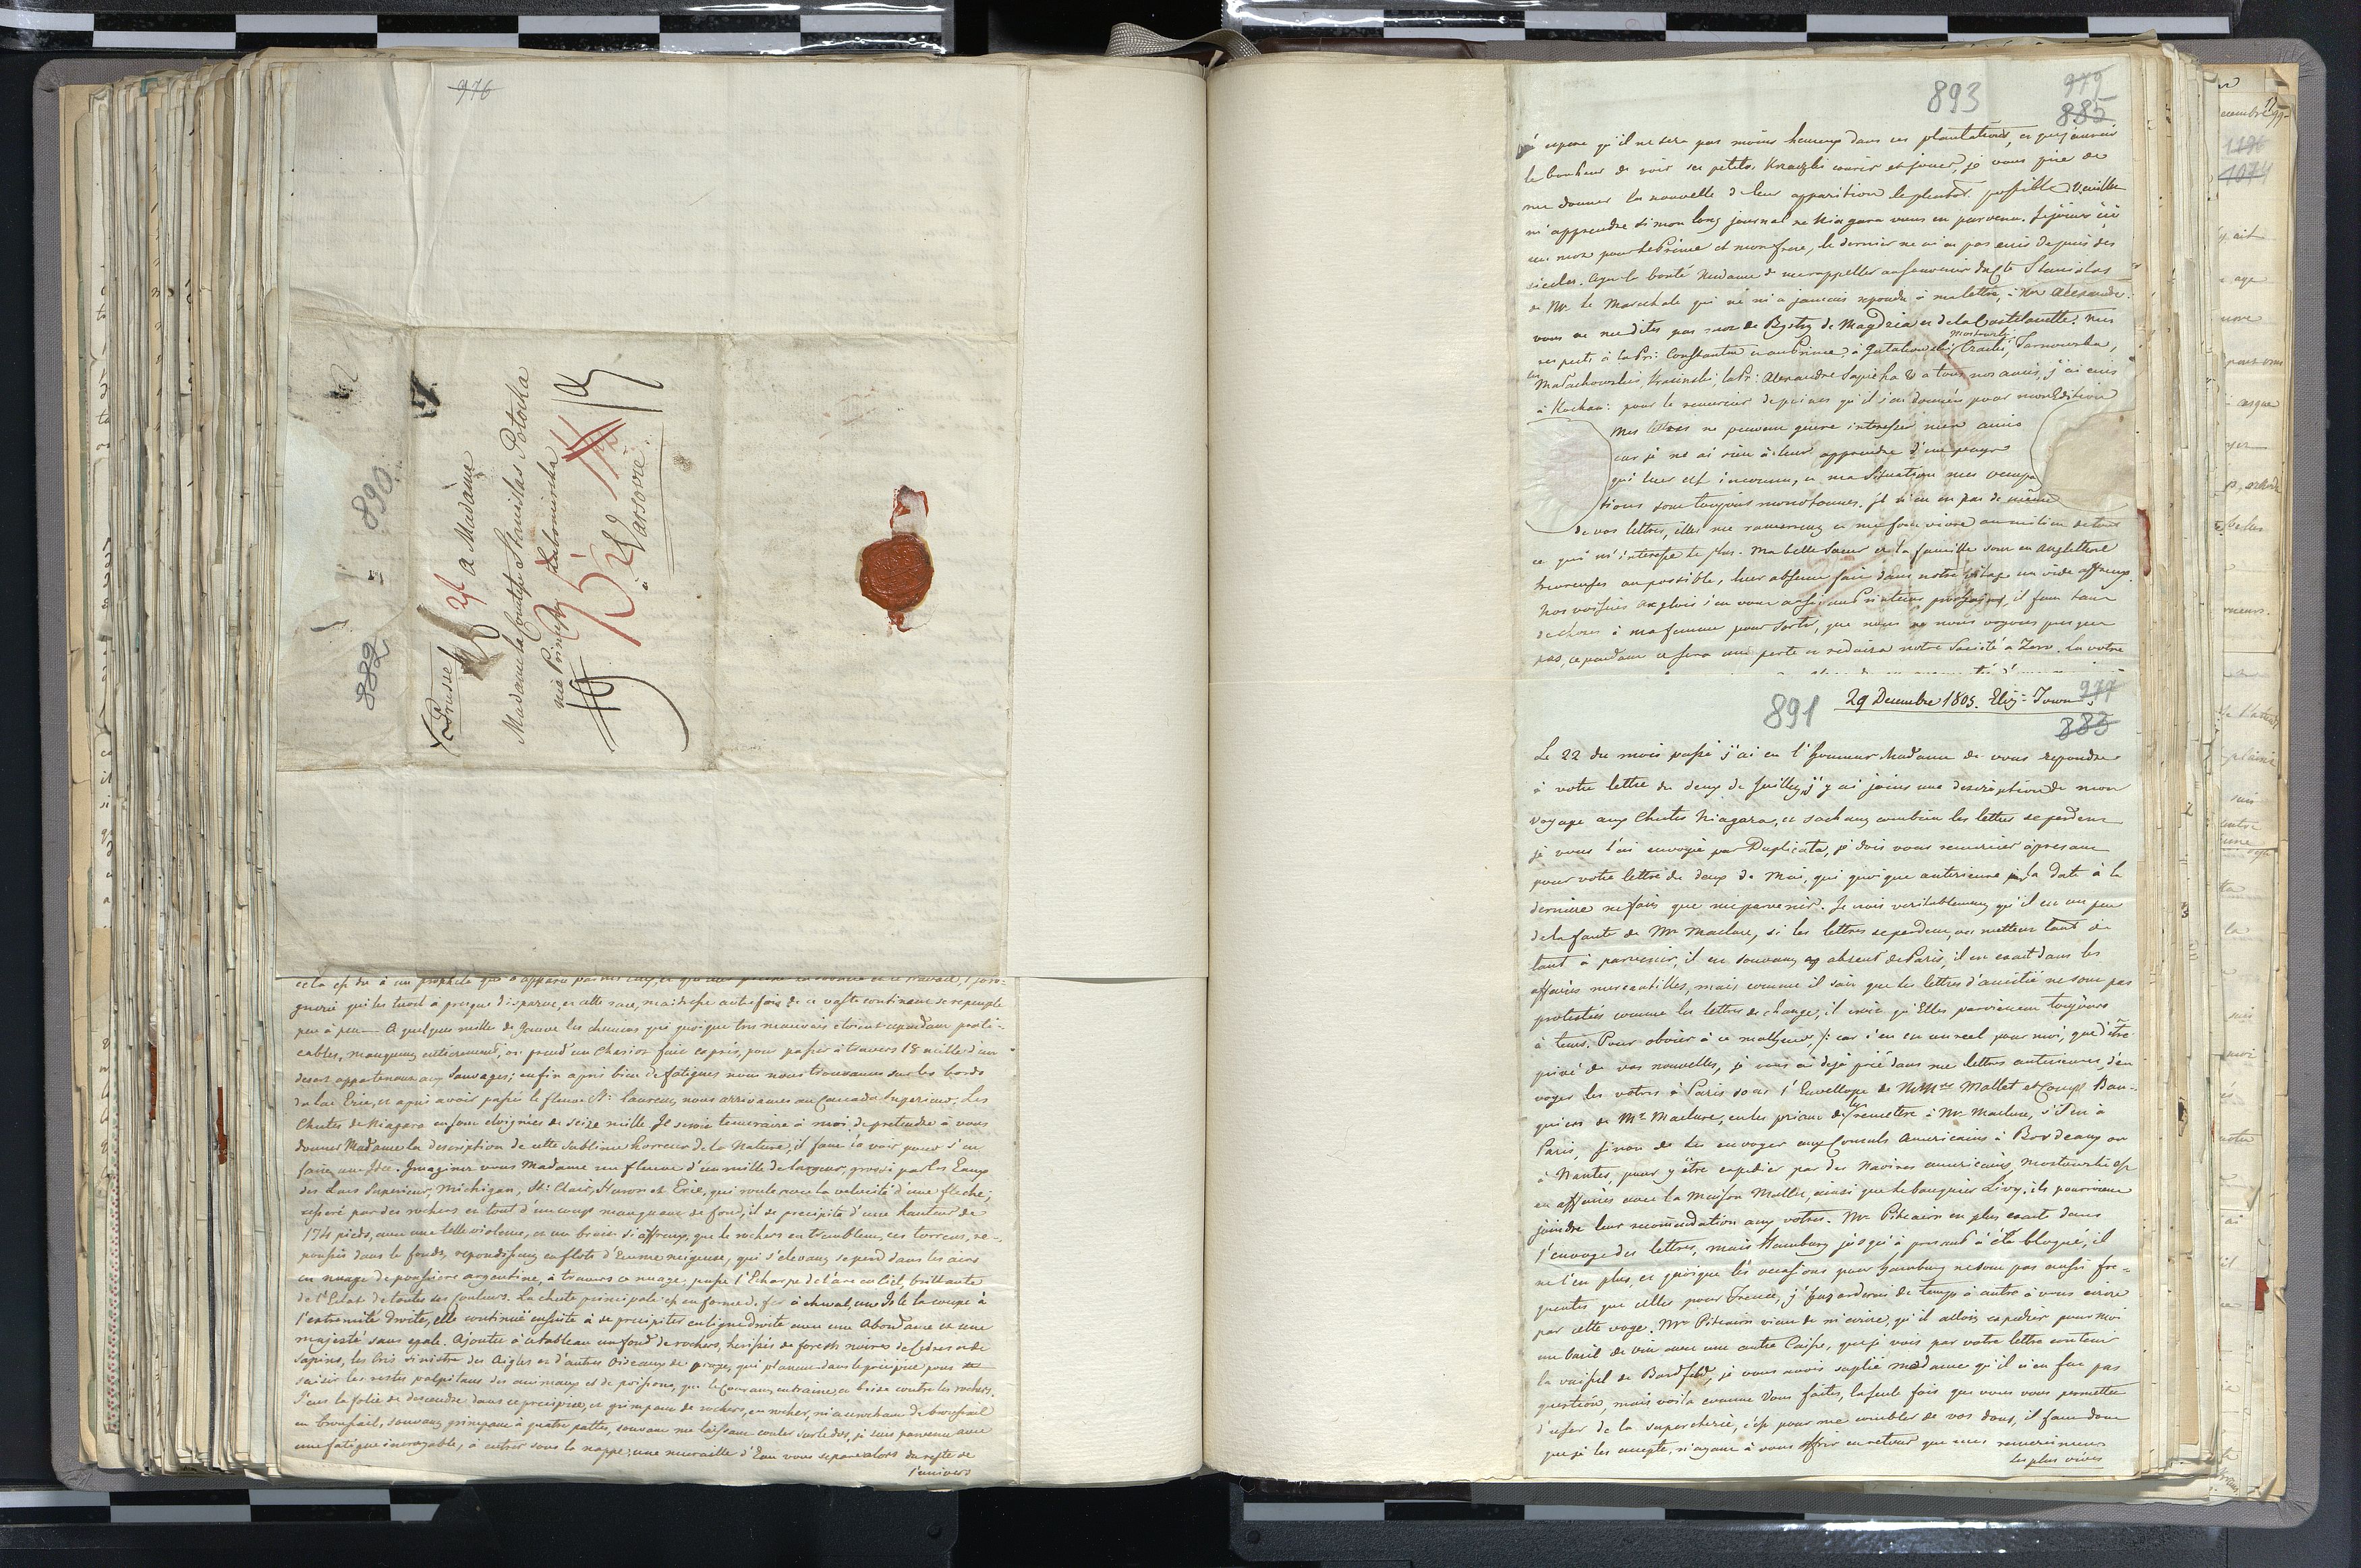 976
890
882
Prusse
a Madame
Madame la Comtesse Stanislas Potocka
née Princesse Lubomirska
à Varsovie
cela est du à un prophète qui a apparu parmi eux, et qui leur
guerie qui les tuoit à presque disparue, et cette race, maitresse autre fois de ce vaste continent se repeuple
peu à peu — A quelques milles de Genève les chemins qui quoique tres mauvais etoient cependant prati-
cables, manquent entierement, on prend un Chariot fait exprès, pour passer à travers 18 mille d'un
desert appartenant aux Sauvages; enfin après bien de fatigues nous nous trouvames sur les bords
du lac Erie, et après avoir passé le fleuve St: Laurent, nous arrivames au Canada Superieur. Les
Chutes de Niagara en sont eloignées de seize mille. Il seroit temeraire à moi, de pretendre à vous
donner Madame la description de cette sublime horreur de la Nature, il faut la voir pour s'en
faire une Idée. Imaginez vous Madame un fleuve d'un mille de largeur, grossi par les Eaux
des Lacs Superieur, Michigan, St: Clair, Huron et Erie, qui roule avec la velocité d'une fleche;
resserré par des rochers et tout d'un coup manquant de fond, il se precipite d'une hauteur de
174 pieds, avec une telle violence, et un bruit si affreux, que les rochers en tremblent, ces torrens, re-
poussés dans le fonds, rependissent en flots d'Ecume neigeuse, qui s'elevant se perd dans les airs
en nuage de poussiere argentine, à travers ce nuage, passe l'Echarpe de l'arc en Ciel, brillante
de l'Eclat de toutes ses Couleurs. La chute principale est en forme de fer à cheval, une Isle la coupe à
l'extremité droite, elle continue ensuite à se precipiter en ligne droite avec une Abondance et une
majesté sans egale. Ajoutez à ce tableau un fond de rochers, herissés de forests noires de Cedres et de
sapins, les cris sinistre des Aigles et d'autres Oiseaux de proye, qui planent dans le precipice pour
saisir les restes palpitans des animaux et de poissons, que le Courant entraine, et brise contre les rochers.
J'eus la folie de descendre dans ce precipice, et grimpant de rochers, en rocher, m'accrochant de broussail
en broussail, souvent grimpant à quatre pattes, souvent me laissant couler sur le dos, je suis parvenu avec
une fatigue incroyable, à entrer sous la nappe; une muraille d'Eau vous separe alors du reste de
l'univers
893
979
885
espere qu'il ne sera pas moins heureux dans ces plantations, et que j'aurois
le bonheur de voir ses petits Kniazki courir et jouer, je vous prie de
me donner la nouvelle de leur apparition le plutot possible Veuillez
m'apprendre si mon long journal de Niagara vous est parvenu. Je joins ici
un mot pour le Prince et mon frere, le dernier ne m'a pas ecris depuis des
siecles. Ayez la bonté Madame de me rappeller au souvenir du Cte Stanislas
de Mr. le Marechale qui ne m'a jamais repondu à ma lettre, à Mr. Alexandre:
vous ne me dites pas mot de Bystry de Magdzia et de la Castelanette. Mes
respects à la Pri: Constantin et au Prince, à Mostowski, Tarnowska,
Malachowskis, Krasinski, la Pr: Alexandre Sapieha & a tous nos amis, j'ai ecris
à Kochan: pour le remercier de peines qu'il s'est donnés pour mon Edition
Mes lettres ne peuvent guere interesser mes amis
car je ne ai rien à leur apprendre d'un pays
qui leur est inconnu, et ma Situation mes occupa
tions sont toujours monotonnes. Il n'en est pas de même
de vos lettres, elles me ramenent et me font vivre au milieu de tout
ce qui m'interesse le plus. Ma belle Soeur et la famille sont en Angletere
heureuses au possible, leur absence fait dans notre Vilage un vide affreux.
Nos voisins Anglois s'en vont aussi au Printems prochains, il faut tant
de choses à ma femme pour sortir, que nous ne nous voyons presque
pas, cependant ce sera une perte et reduira notre Société à Zero. La votre
891
29 Decembre 1805. Eliz-Town
977
883
Le 22 du mois passé j'ai eu l'honneur Madame de vous repondre
à votre lettre du deux de Juillet, j'y ai joint une description de mon
voyage aux Chutes Niagara, et sachant combien les lettres se perdent
je vous l'ai envoyé par Duplicata, je dois vous remercier à present
pour votre lettre du deux de Mai, qui quoique anterieure par la date à la
derniere ne fait que me parvenir. Je crois veritablement qu'il est un peu
de la faute de Mr Maclure, si les lettres se perdent, ou mettent tant de
tant à parvenir, il est souvent absent de Paris, il est exact dans les
affaires mercantilles, mais comme il sait que les lettres d'amitié ne sont pas
protestées comme les lettres de change, il croit qu'Elles parviennent toujours
à tems. Pour obvier à ce malheur, /: car s'en est un reel pour moi, que d'être
privé de vos nouvelles, je vous ai dejà prié dans mes lettres anterieures, d'en
voyer les votres à Paris sous l'Enveloppe de MMrs Mallet et Comp Ban-
quiers de Mr Maclure, en les priant de les remettre à Mr Maclure, s'il est à
Paris, sinon de les envoyer aux Consuls Americains à Bordeaux ou
à Nantes, pour y être expedier par des Navires americains, Mostowski est
en affaires avec la Maison Mallet, ainsi que le banquier Livy, ils pourroient
joindre leur recomendation aux votres. Mr Pitcairn est plus exact dans
l'envoye des lettres, mais Hamburg jusqu'à present à été bloqué, il
ne l'est plus, et quoique les occasions pour Hamburg ne sont pas aussi fre-
quentes que celles pour France, j'hazarderois de temps à autre à vous ecrire
par cette voye. Mr Pitcairn vient de m'ecrire, qu'il alloit expedier pour moi
un baril de vin avec une autre Caisse, que je vois par votre lettre contenir
la vaissel de Bardfeld, je vous avois suplié Madame qu'il n'en fut pas
question, mais voila comme Vous faites, la seule fois que vous vous permettez
d'user de la supercherie, c'est pour me combler de vos dons, il faut donc
que je les accepte, n'ayant à vous offrir en retour que mes remercimens
les plus vives